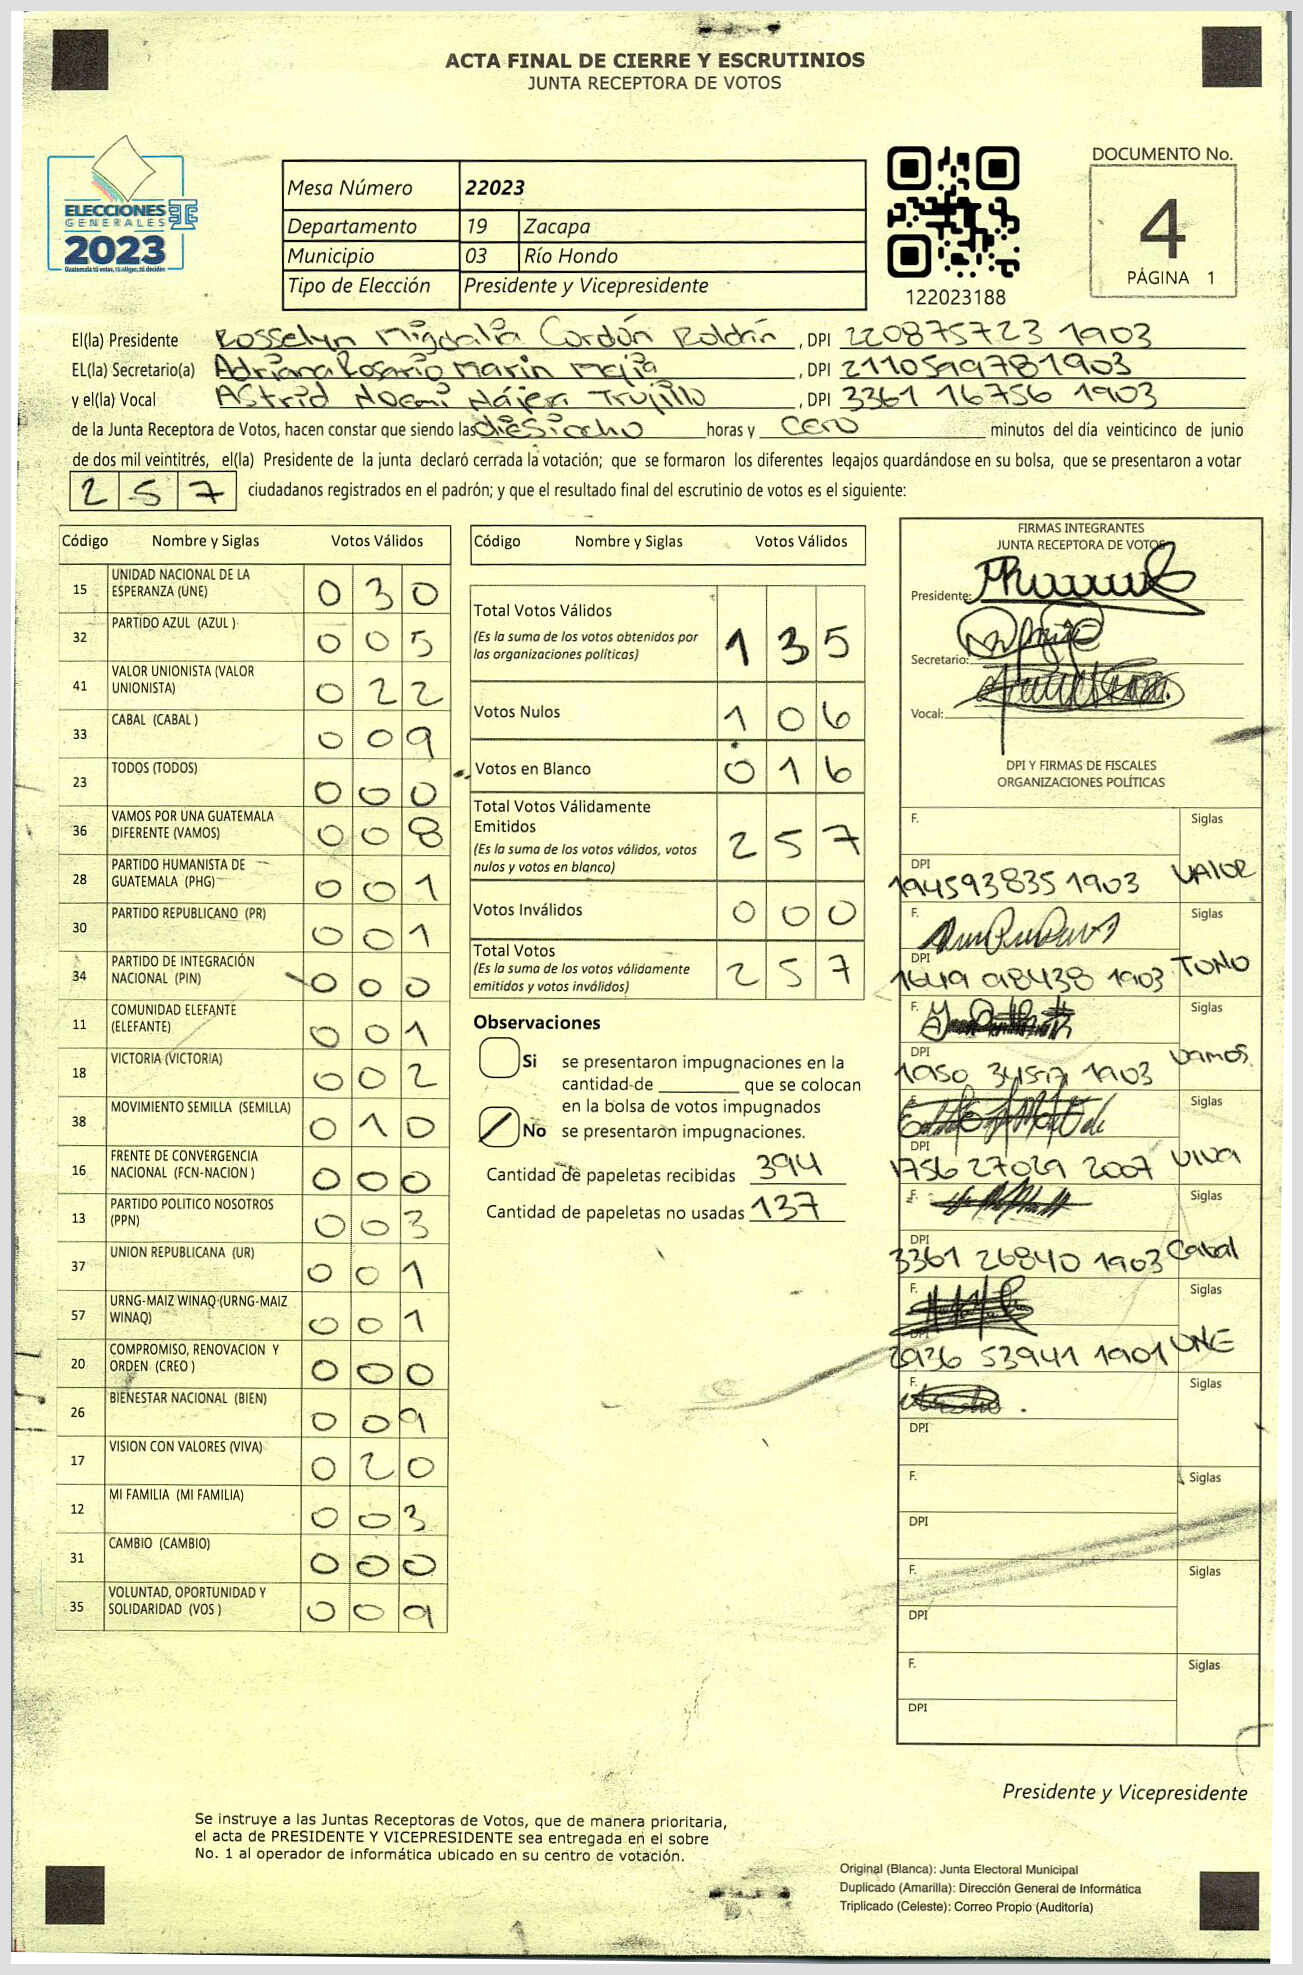 ACTA FINAL DE CIERRE Y ESCRUTINIOS
JUNTA RECEPTORA DE VOTOS
ELECCIONES
GENERALES
2023
Guatemala tú votas, tú eliges, tú decides
Mesa Número 22023
Departamento 19 Zacapa
Municipio 03 Río Hondo
Tipo de Elección Presidente y Vicepresidente
122023188
DOCUMENTO No.
4
PÁGINA 1
El(la) Presidente Rosselyn Migdalia Cordón Roldán, DPI 220875723 1903
EL(la) Secretario(a) Adriana Rosario Marin Mejia, DPI 2110599781903
y el(la) Vocal Astrid Noemi Nájera Trujillo, DPI 3361 16756 1903
de la Junta Receptora de Votos, hacen constar que siendo las diesiocho horas y cero minutos del día veinticinco de junio
de dos mil veintitrés, el(la) Presidente de la junta declaró cerrada la votación; que se formaron los diferentes legajos guardándose en su bolsa, que se presentaron a votar
257 ciudadanos registrados en el padrón; y que el resultado final del escrutinio de votos es el siguiente:
Código Nombre y Siglas Votos Válidos
15 UNIDAD NACIONAL DE LA ESPERANZA (UNE) 030
32 PARTIDO AZUL (AZUL ) 005
41 VALOR UNIONISTA (VALOR UNIONISTA) 022
33 CABAL (CABAL ) 009
23 TODOS (TODOS) 000
36 VAMOS POR UNA GUATEMALA DIFERENTE (VAMOS) 008
28 PARTIDO HUMANISTA DE GUATEMALA (PHG) 001
30 PARTIDO REPUBLICANO (PR) 001
34 PARTIDO DE INTEGRACIÓN NACIONAL (PIN) 000
11 COMUNIDAD ELEFANTE (ELEFANTE) 001
18 VICTORIA (VICTORIA) 002
38 MOVIMIENTO SEMILLA (SEMILLA) 010
16 FRENTE DE CONVERGENCIA NACIONAL (FCN-NACION ) 000
13 PARTIDO POLITICO NOSOTROS (PPN) 003
37 UNION REPUBLICANA (UR) 001
57 URNG-MAIZ WINAQ (URNG-MAIZ WINAQ) 001
20 COMPROMISO, RENOVACION Y ORDEN (CREO ) 000
26 BIENESTAR NACIONAL (BIEN) 009
17 VISION CON VALORES (VIVA) 020
12 MI FAMILIA (MI FAMILIA) 003
31 CAMBIO (CAMBIO) 000
35 VOLUNTAD, OPORTUNIDAD Y SOLIDARIDAD (VOS ) 009
Código Nombre y Siglas Votos Válidos
Total Votos Válidos 135
(Es la suma de los votos obtenidos por
las organizaciones políticas)
Votos Nulos 106
Votos en Blanco 016
Total Votos Válidamente
Emitidos 257
(Es la suma de los votos válidos, votos
nulos y votos en blanco)
Votos Inválidos 000
Total Votos 257
(Es la suma de los votos válidamente
emitidos y votos inválidos)
Observaciones
Si se presentaron impugnaciones en la
cantidad de ________ que se colocan
en la bolsa de votos impugnados
No se presentaron impugnaciones.
Cantidad de papeletas recibidas 394
Cantidad de papeletas no usadas 137
FIRMAS INTEGRANTES
JUNTA RECEPTORA DE VOTOS
Presidente:
Secretario:
Vocal:
DPI Y FIRMAS DE FISCALES
ORGANIZACIONES POLÍTICAS
F. Siglas
DPI 194593835 1903 VALOR
F. Siglas
DPI 1649 98438 1903 TONO
F. Siglas
DPI 1950 34517 1903 Vamos
F. Siglas
DPI 1756 27029 2007 VIVA
F. Siglas
DPI 3361 26840 1903 Cabal
F. Siglas
DPI 2936 53941 1901 UNE
F. Siglas
DPI
F. Siglas
DPI
F. Siglas
DPI
F. Siglas
DPI
Presidente y Vicepresidente
Se instruye a las Juntas Receptoras de Votos, que de manera prioritaria,
el acta de PRESIDENTE Y VICEPRESIDENTE sea entregada en el sobre
No. 1 al operador de informática ubicado en su centro de votación.
Original (Blanca): Junta Electoral Municipal
Duplicado (Amarilla): Dirección General de Informática
Triplicado (Celeste): Correo Propio (Auditoría)